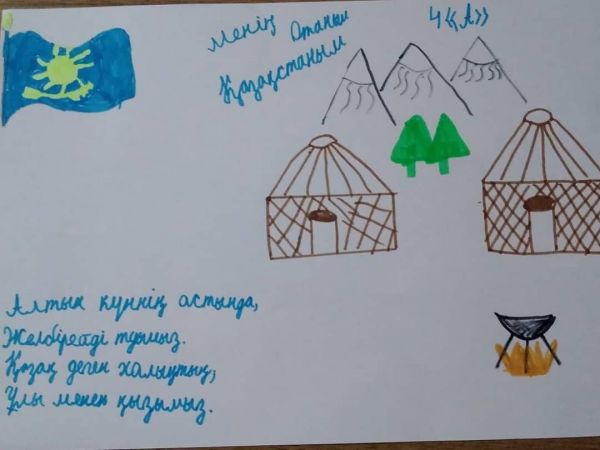 Менің Отаным
Қазақстаным
4 «А»
Алтын күннің астында,
Желбірейді туымыз.
Қазақ деген халықтың,
Ұлы менен қызымыз.